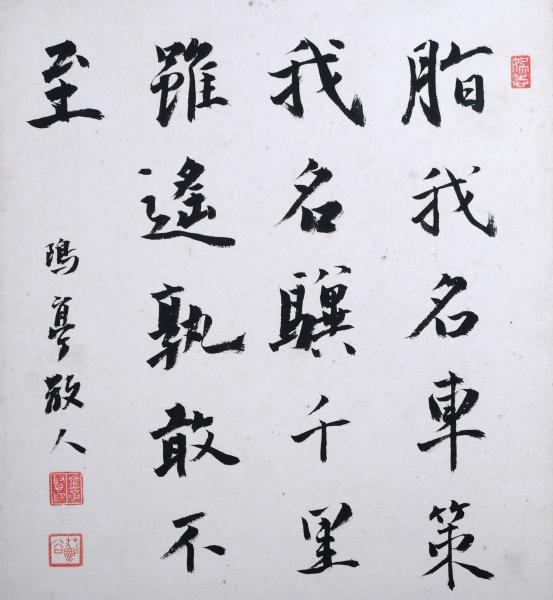 脂我名車策
我名驥千里
雖遙孰敢不
至
隝亭散人